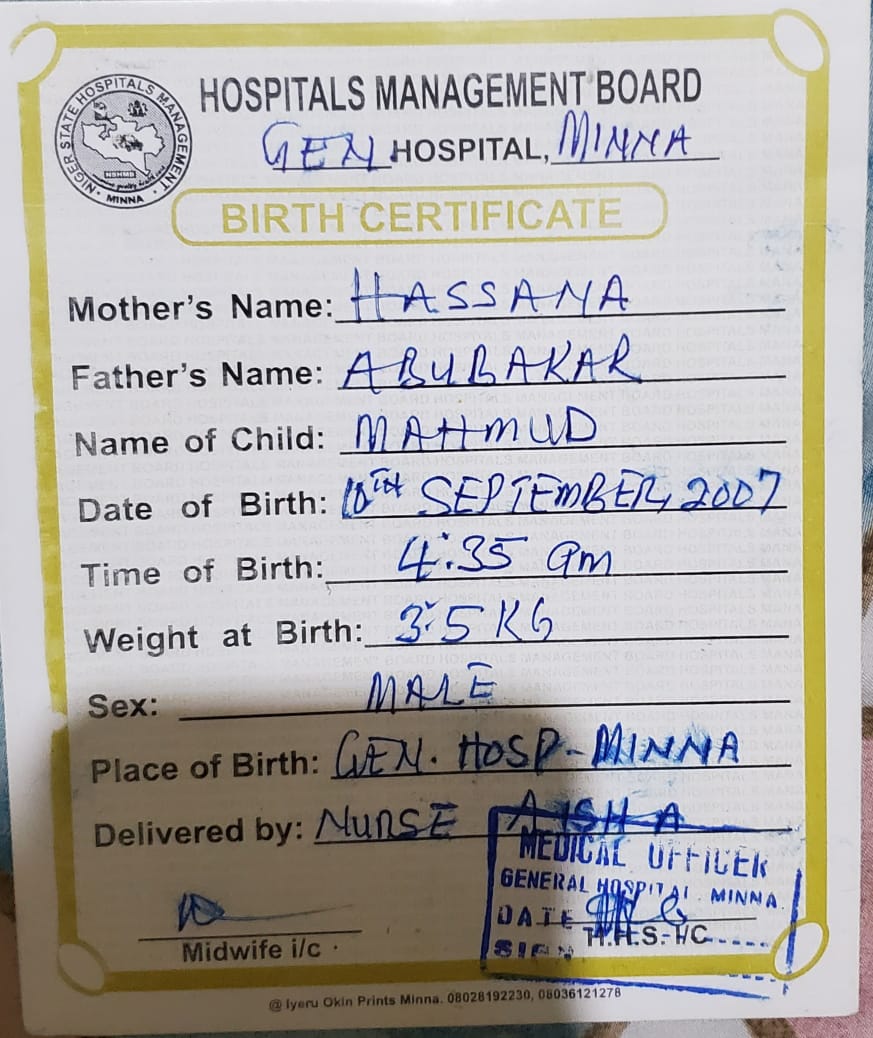 HOSPITALS MANAGEMENT BOARD
GEN HOSPITAL, MINNA
NIGER STATE HOSPITALS MANAGEMENT
MINNA
BIRTH CERTIFICATE
Mother's Name: HASSANA
Father's Name: ABUBAKAR
Name of Child: MAHMUD
Date of Birth: 10TH SEPTEMBER, 2007
Time of Birth: 4:35 am
Weight at Birth: 3.5 KG
Sex: MALE
Place of Birth: GEN. HOSP-MINNA
Delivered by: NURSE AISHA
MEDICAL OFFICER
GENERAL HOSPITAL MINNA.
DATE
SIGN
H.H.S.-I/C
Midwife i/c
@ Iyeru Okin Prints Minna. 08028192230, 08036121278